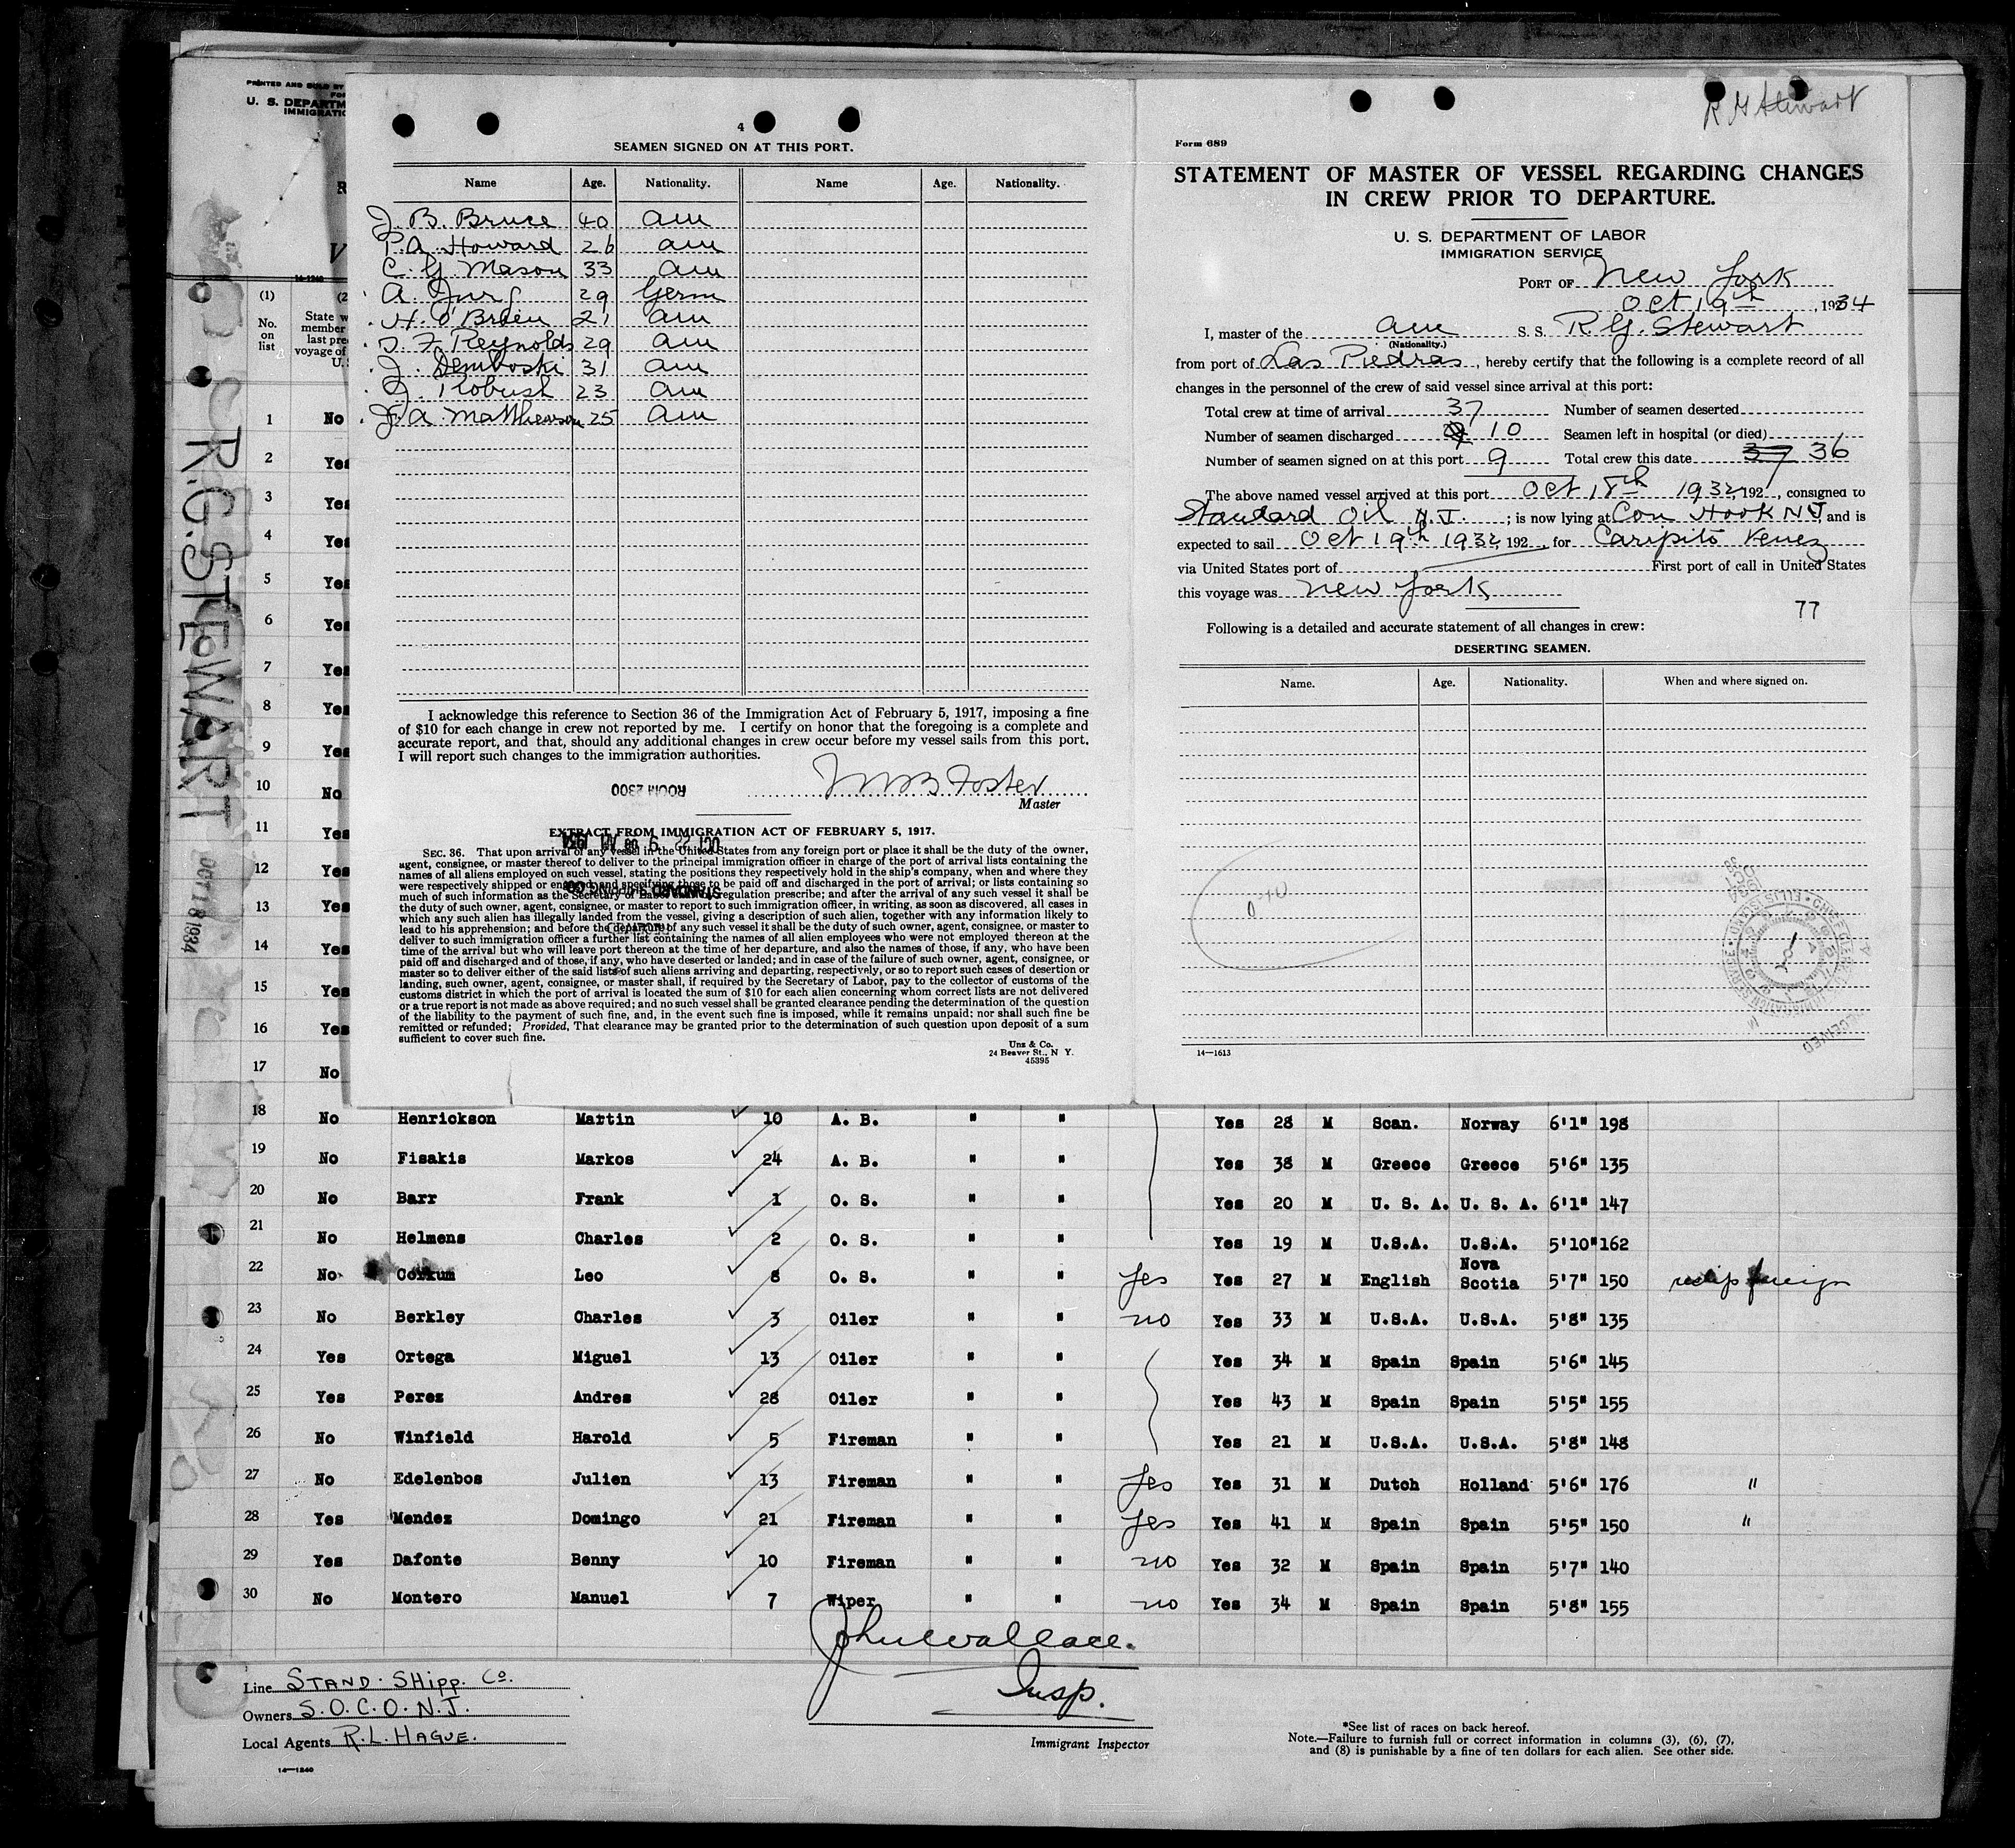 PRINTED AND SOLD BY
U. S. DEPARTM
IMMIGRATIO
4
SEAMEN SIGNED ON AT THIS PORT.
Name Age. Nationality. Name Age. Nationality.
J. B. Bruce 40 Am
P. A. Howard 26 Am
C. G. Mason 33 Am
A. 29 Germ
H. O'Brien 21 Am
S. F. Reynolds 29 Am
J. Demboski 31 Am
J. Robush 23 Am
J. A. Matthewson 25 Am
I acknowledge this reference to Section 36 of the Immigration Act of February 5, 1917, imposing a fine
of $10 for each change in crew not reported by me. I certify on honor that the foregoing is a complete and
accurate report, and that, should any additional changes in crew occur before my vessel sails from this port.
I will report such changes to the immigration authorities.
ROOM 2300
B Foster
Master
EXTRACT FROM IMMIGRATION ACT OF FEBRUARY 5, 1917.
SEC. 36. That upon arrival of any vessel in the United States from any foreign port or place it shall be the duty of the owner,
agent, consignee, or master thereof to deliver to the principal immigration officer in charge of the port of arrival lists containing the
names of all aliens employed on such vessel, stating the positions they respectively hold in the ship's company, when and where they
were respectively shipped or engaged, and specifying those to be paid off and discharged in the port of arrival; or lists containing so
much of such information as the Secretary of Labor shall by regulation prescribe; and after the arrival of any such vessel it shall be
the duty of such owner, agent, consignee, or master to report to such immigration officer, in writing, as soon as discovered, all cases in
which any such alien has illegally landed from the vessel, giving a description of such alien, together with any information likely to
lead to his apprehension; and before the departure of any such vessel it shall be the duty of such owner, agent, consignee, or master to
deliver to such immigration officer a further list containing the names of all alien employees who were not employed thereon at the
time of the arrival but who will leave port thereon at the time of her departure, and also the names of those, if any, who have been
paid off and discharged and of those, if any, who have deserted or landed; and in case of the failure of such owner, agent, consignee, or
master so to deliver either of the said lists of such aliens arriving and departing, respectively, or so to report such cases of desertion or
landing, such owner, agent, consignee, or master shall, if required by the Secretary of Labor, pay to the collector of customs of the
customs district in which the port of arrival is located the sum of $10 for each alien concerning whom correct lists are not delivered
or a true report is not made as above required; and no such vessel shall be granted clearance pending the determination of the question
of the liability to the payment of such fine, and, in the event such fine is imposed, while it remains unpaid; nor shall such fine be
remitted or refunded; Provided, That clearance may be granted prior to the determination of such question upon deposit of a sum
sufficient to cover such fine.
Unz & Co.
24 Beaver St., N Y.
45395
R G Stewart
Form 689
STATEMENT OF MASTER OF VESSEL REGARDING CHANGES
IN CREW PRIOR TO DEPARTURE.
U. S. DEPARTMENT OF LABOR
IMMIGRATION SERVICE
PORT OF New York
Oct 19th, 1934
I, master of the Am S. S. R. G. Stewart
(Nationality.)
from port of Las Piedras, hereby certify that the following is a complete record of all
changes in the personnel of the crew of said vessel since arrival at this port:
Total crew at time of arrival 37 Number of seamen deserted
Number of seamen discharged 10 Seamen left in hospital (or died)
Number of seamen signed on at this port 9 Total crew this date 37 36
The above named vessel arrived at this port Oct 18th 1932, 192 , consigned to
Standard Oil N.J. ; is now lying at Con Hook NJ and is
expected to sail Oct 19th 1932, 192 , for Caripito Venez
via United States port of First port of call in United States
this voyage was New York
77
Following is a detailed and accurate statement of all changes in crew:
DESERTING SEAMEN.
Name. Age. Nationality. When and where signed on.
14—1613
R.G. STEWART
OCT 18 1934
14-1240
(1) (2
No. on list
State w
member
last pre
voyage of
U. S
1 No
2 Yes
3 Yes
4 Yes
5 Yes
6 Yes
7 Yes
8 Yes
9 Yes
10 No
11 Yes
12 Yes
13 Yes
14 Yes
15 Yes
16 Yes
17 No
18 No Henrickson Martin 10 A. B. " " Yes 28 M Scan. Norway 6'1" 198
19 No Fisakis Markos 24 A. B. " " Yes 38 M Greece Greece 5'6" 135
20 No Barr Frank 1 O. S. " " Yes 20 M U. S. A. U. S. A. 6'1" 147
21 No Helmens Charles 2 O. S. " " Yes 19 M U.S.A. U.S.A. 5'10" 162
22 No Corkum Leo 8 O. S. " " Yes Yes 27 M English Nova Scotia 5'7" 150 reship foreign
23 No Berkley Charles 3 Oiler " " no Yes 33 M U.S.A. U.S.A. 5'8" 135
24 Yes Ortega Miguel 13 Oiler " " Yes 34 M Spain Spain 5'6" 145
25 Yes Perez Andres 28 Oiler " " Yes 43 M Spain Spain 5'5" 155
26 No Winfield Harold 5 Fireman " " Yes 21 M U.S.A. U.S.A. 5'8" 148
27 No Edelenbos Julien 13 Fireman " " Yes Yes 31 M Dutch Holland 5'6" 176 "
28 Yes Mendez Domingo 21 Fireman " " Yes Yes 41 M Spain Spain 5'5" 150 "
29 Yes Dafonte Benny 10 Fireman " " no Yes 32 M Spain Spain 5'7" 140
30 No Montero Manuel 7 Wiper " " no Yes 34 M Spain Spain 5'8" 155
John Wallace.
Insp.
Immigrant Inspector
Line Stand. Shipp. Co.
Owners S.O.C.O. N.J.
Local Agents R.L. Hague.
14—1240
*See list of races on back hereof.
Note.—Failure to furnish full or correct information in columns (3), (6), (7),
and (8) is punishable by a fine of ten dollars for each alien. See other side.